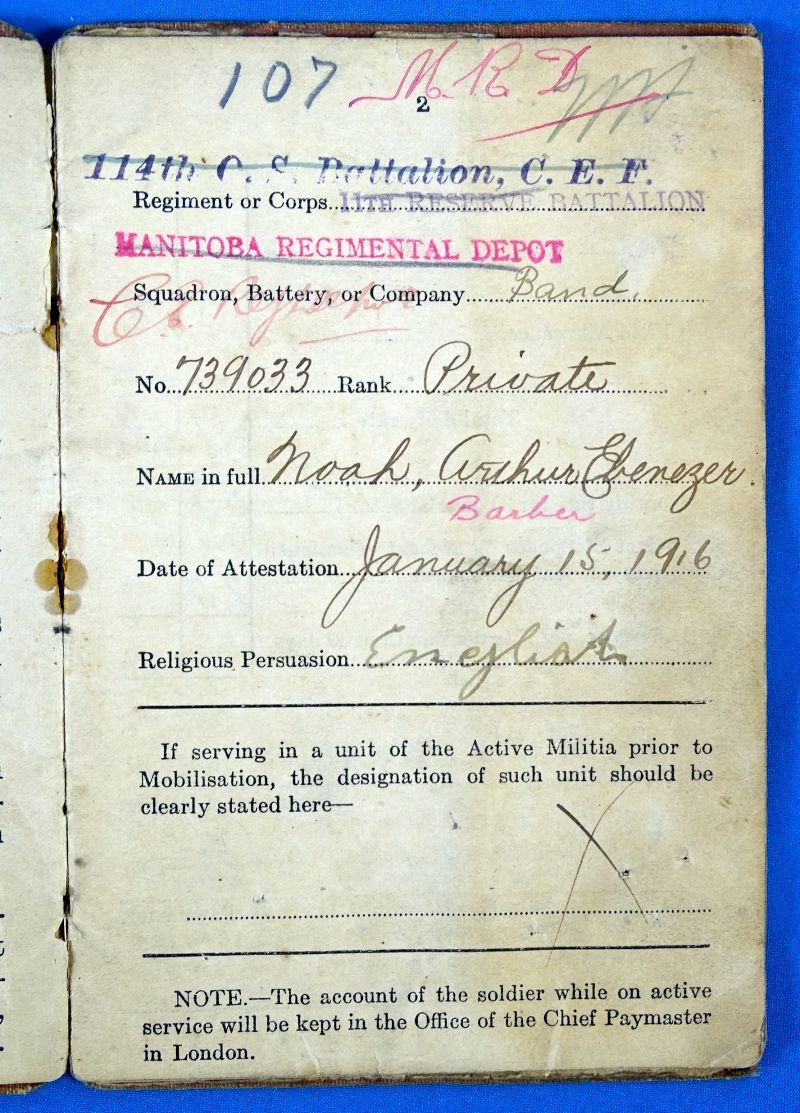 107 M. R. D.
2
114th O. S. Battalion, C. E. F.
Regiment or Corps 11TH RESERVE BATTALION
MANITOBA REGIMENTAL DEPOT
Squadron, Battery, or Company Band.
No. 739033 Rank Private
NAME in full Noah, Arthur Ebenezer.
Barber
Date of Attestation January 15, 1916
Religious Persuasion English
If serving in a unit of the Active Militia prior to
Mobilisation, the designation of such unit should be
clearly stated here—
X
NOTE.—The account of the soldier while on active
service will be kept in the Office of the Chief Paymaster
in London.